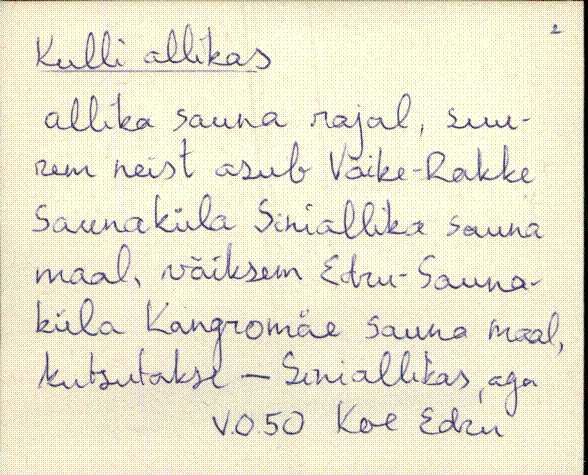 2
Kulli allikas
allika sauna rajal, suu-
rem neist asub Väike-Rakke
Saunaküla Siniallika sauna
maal, väiksem Edru-Sauna-
küla Kangromäe sauna maal,
kutsutakse — Siniallikas, aga
V.O.50 Koe Edru